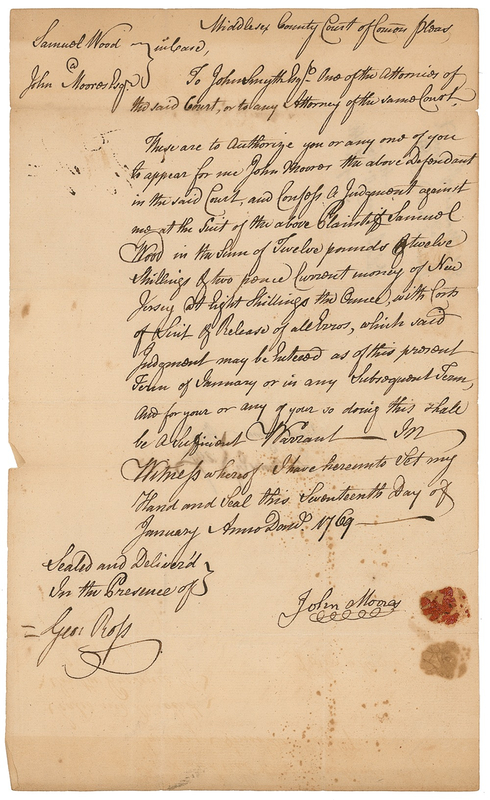 Middlesex County Court of Comon Pleas
Samuel Wood
a
John Moores Esqr.
incase,
To John Smyth Esqr. One of the Attornies of
the said Court, or to any Attorney of the same Court.
These are to Authorize you or any one of you
to appear for me John Moores the above Defendant
in the said Court, and Confess A Judgment against
me at the Suit of the above Plaintiff Samuel
Wood in the Sum of Twelve pounds & twelve
Shillings & two pence Current money of New
Jersey At Eight Shillings the Ounce, with Costs
of Suit & Release of all Erros, which said
Judgment may be Entered as of this present
Term of January or in any Subsequent Term,
And for your or any of your so doing this shall
be A Sufficient Warrant In
Witness whereof I have hereunto Set my
Hand and Seal this Seventeenth Day of
January Anno Domi. 1769
Sealed and Deliver'd
In the Presence of
Geo: Ross
John Moores